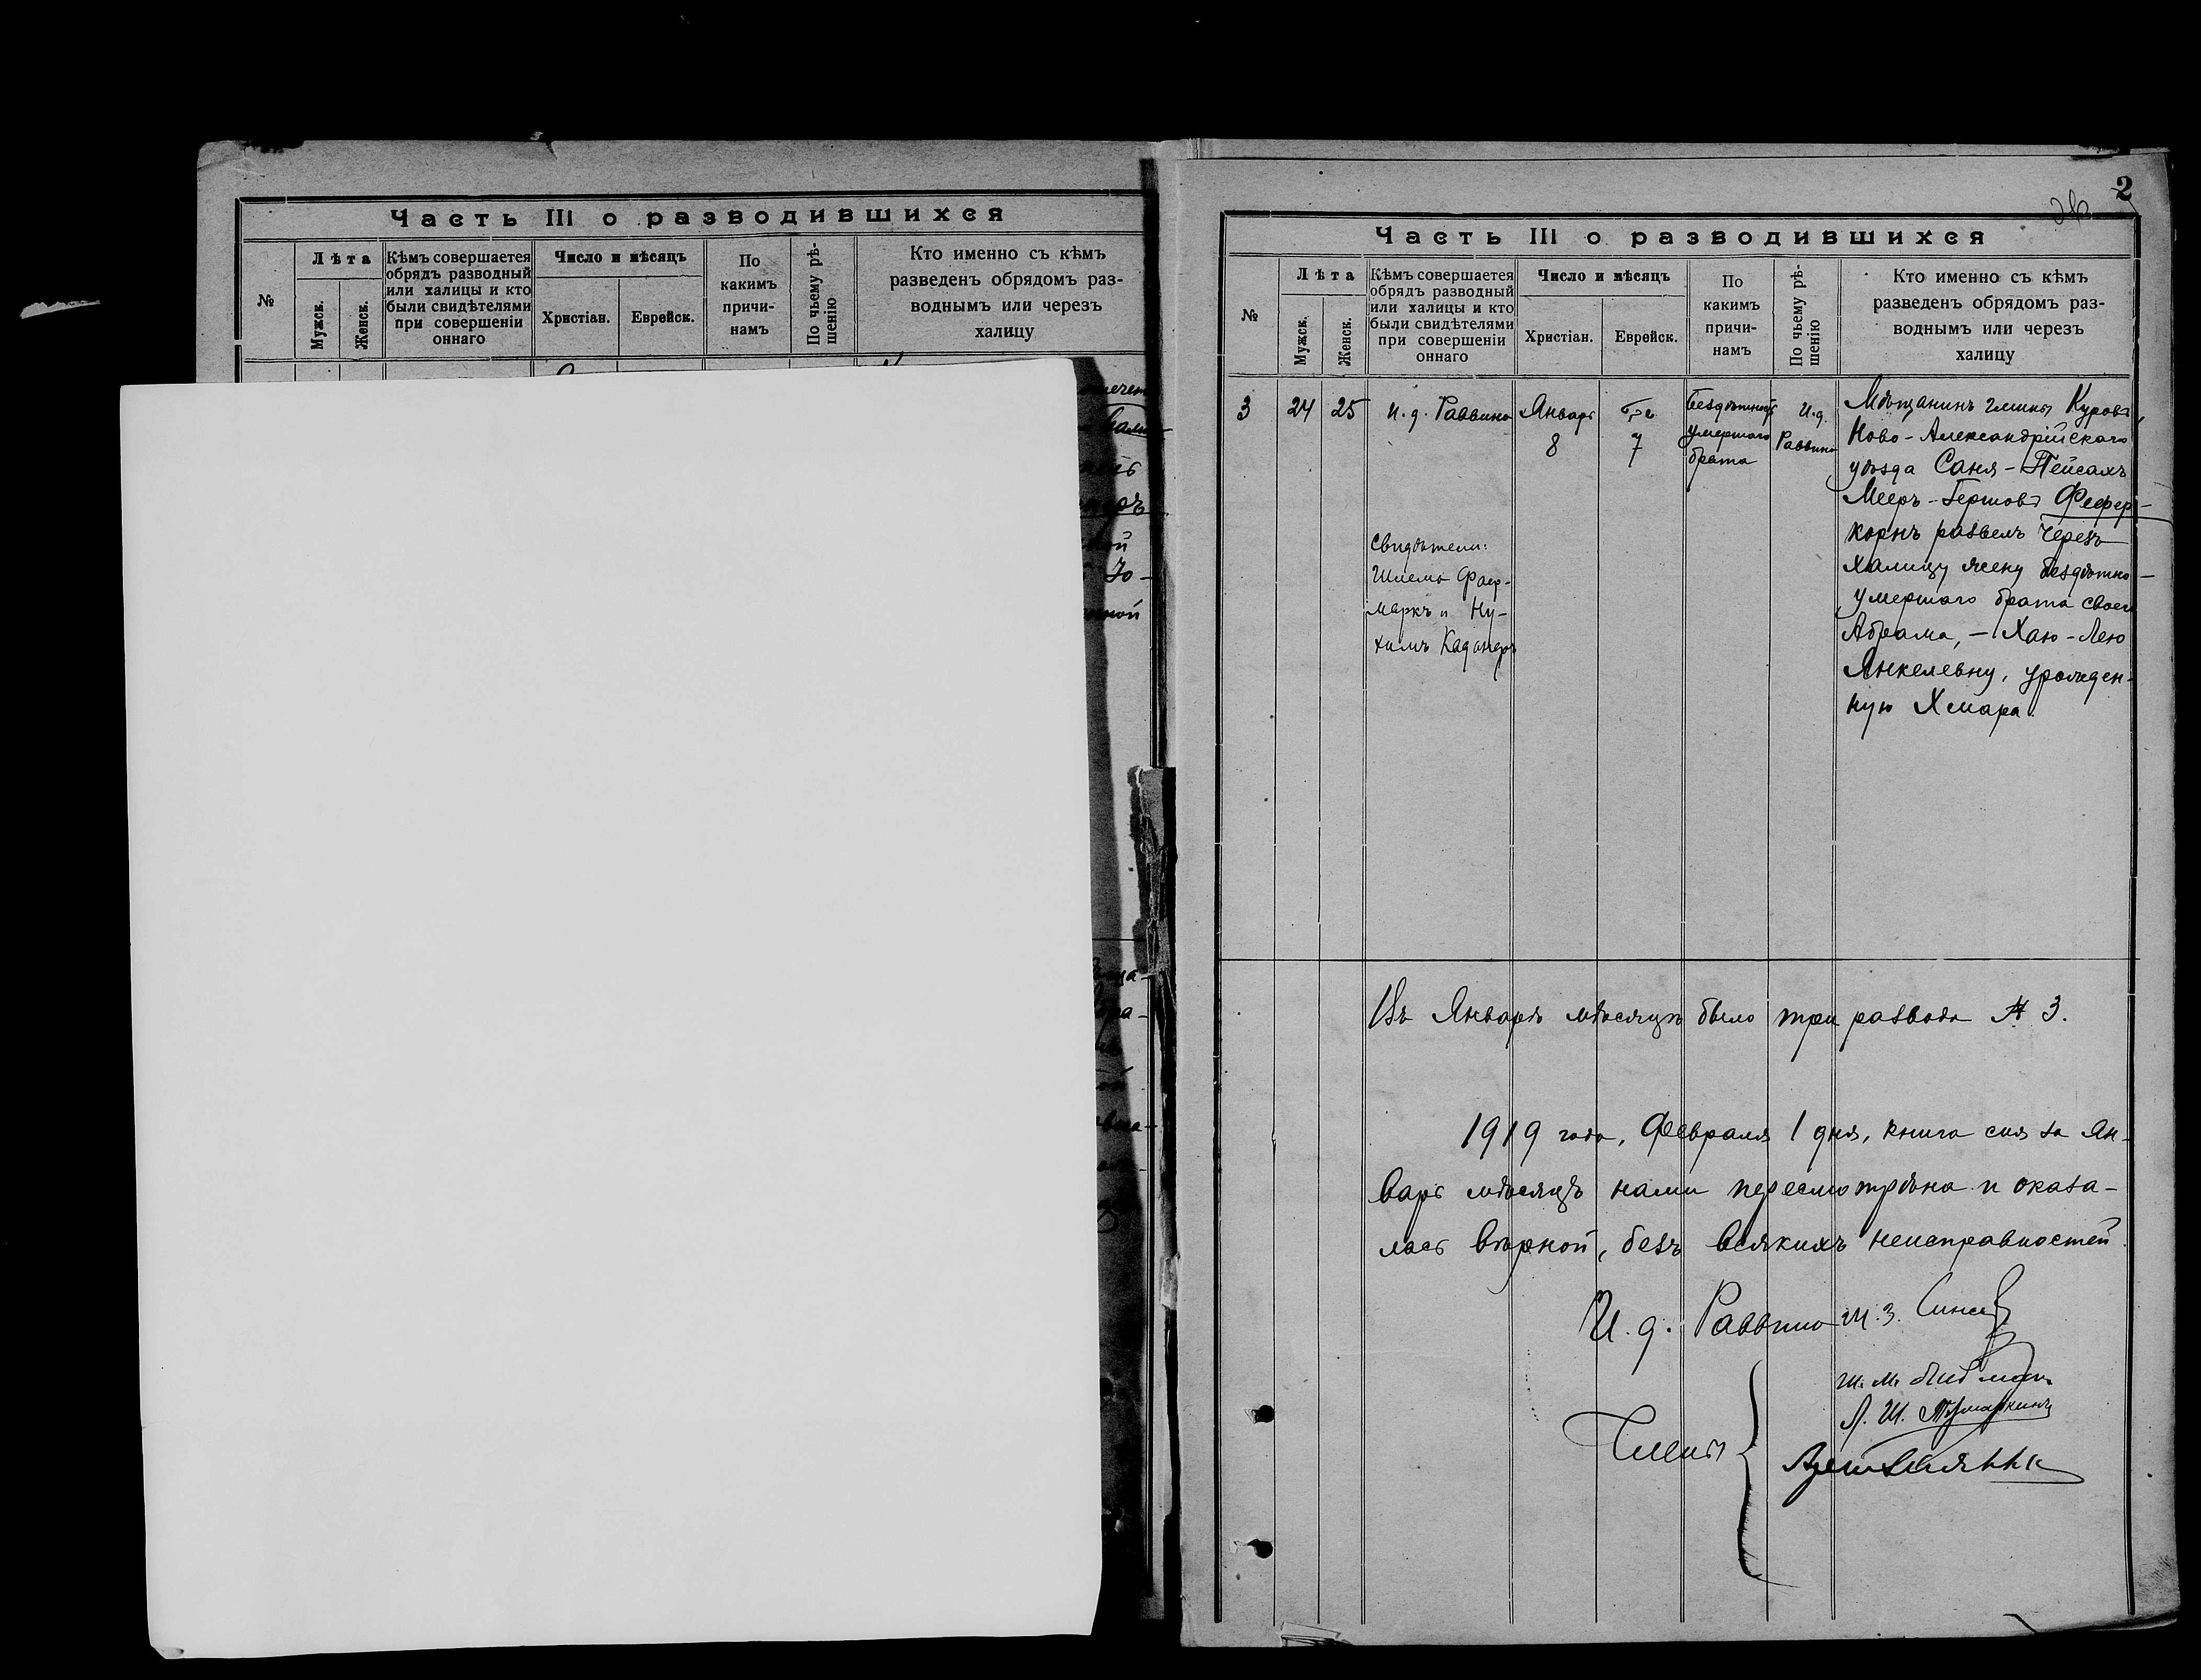 Часть III о разводившихся
№
Лѣта
Мужск.
Женск.
Кѣмъ совершается
обрядъ разводный
или халицы и кто
были свидѣтелями
при совершеніи
оннаго
Число и мѣсяцъ
Христіан.
Еврейск.
По
какимъ
причи-
намъ
По чьему рѣ-
шенію
Кто именно съ кѣмъ
разведенъ обрядомъ раз-
воднымъ или черезъ
халицу
2
Часть III о разводившихся
№
Лѣта
Мужск.
Женск.
Кѣмъ совершается
обрядъ разводный
или халицы и кто
были свидѣтелями
при совершеніи
оннаго
Число и мѣсяцъ
Христіан.
Еврейск.
По
какимъ
причи-
намъ
По чьему рѣ-
шенію
Кто именно съ кѣмъ
разведенъ обрядомъ раз-
воднымъ или черезъ
халицу
3
24
25
И. д. Раввина
Свидѣтели:
Шлема Фаер-
маркъ и Ну-
химъ
Январь
8
7
Бездѣтность
умершаго
брата
И.д.
Раввина
Мѣщанинъ гмины Куровъ,
Ново-Александрійскаго
уѣзда Саня-Пейсахъ
Мееръ-Гершовъ Фефер-
корнъ развелъ черезъ
халицу жену бездѣтно-
умершаго брата своего
Абрама, - Хаю-Лею
Янкелевну, урожден-
ную Хмара.
Въ Январѣ мѣсяцѣ было три развода № 3.
1919 года, Февраля 1 дня, книга сия за Ян-
варь мѣсяцъ нами пересмотрѣна и оказа-
лась вѣрной, безъ всякихъ неисправностей.
И. д. Раввина
Члены
Л. Ш. Тумаркинъ